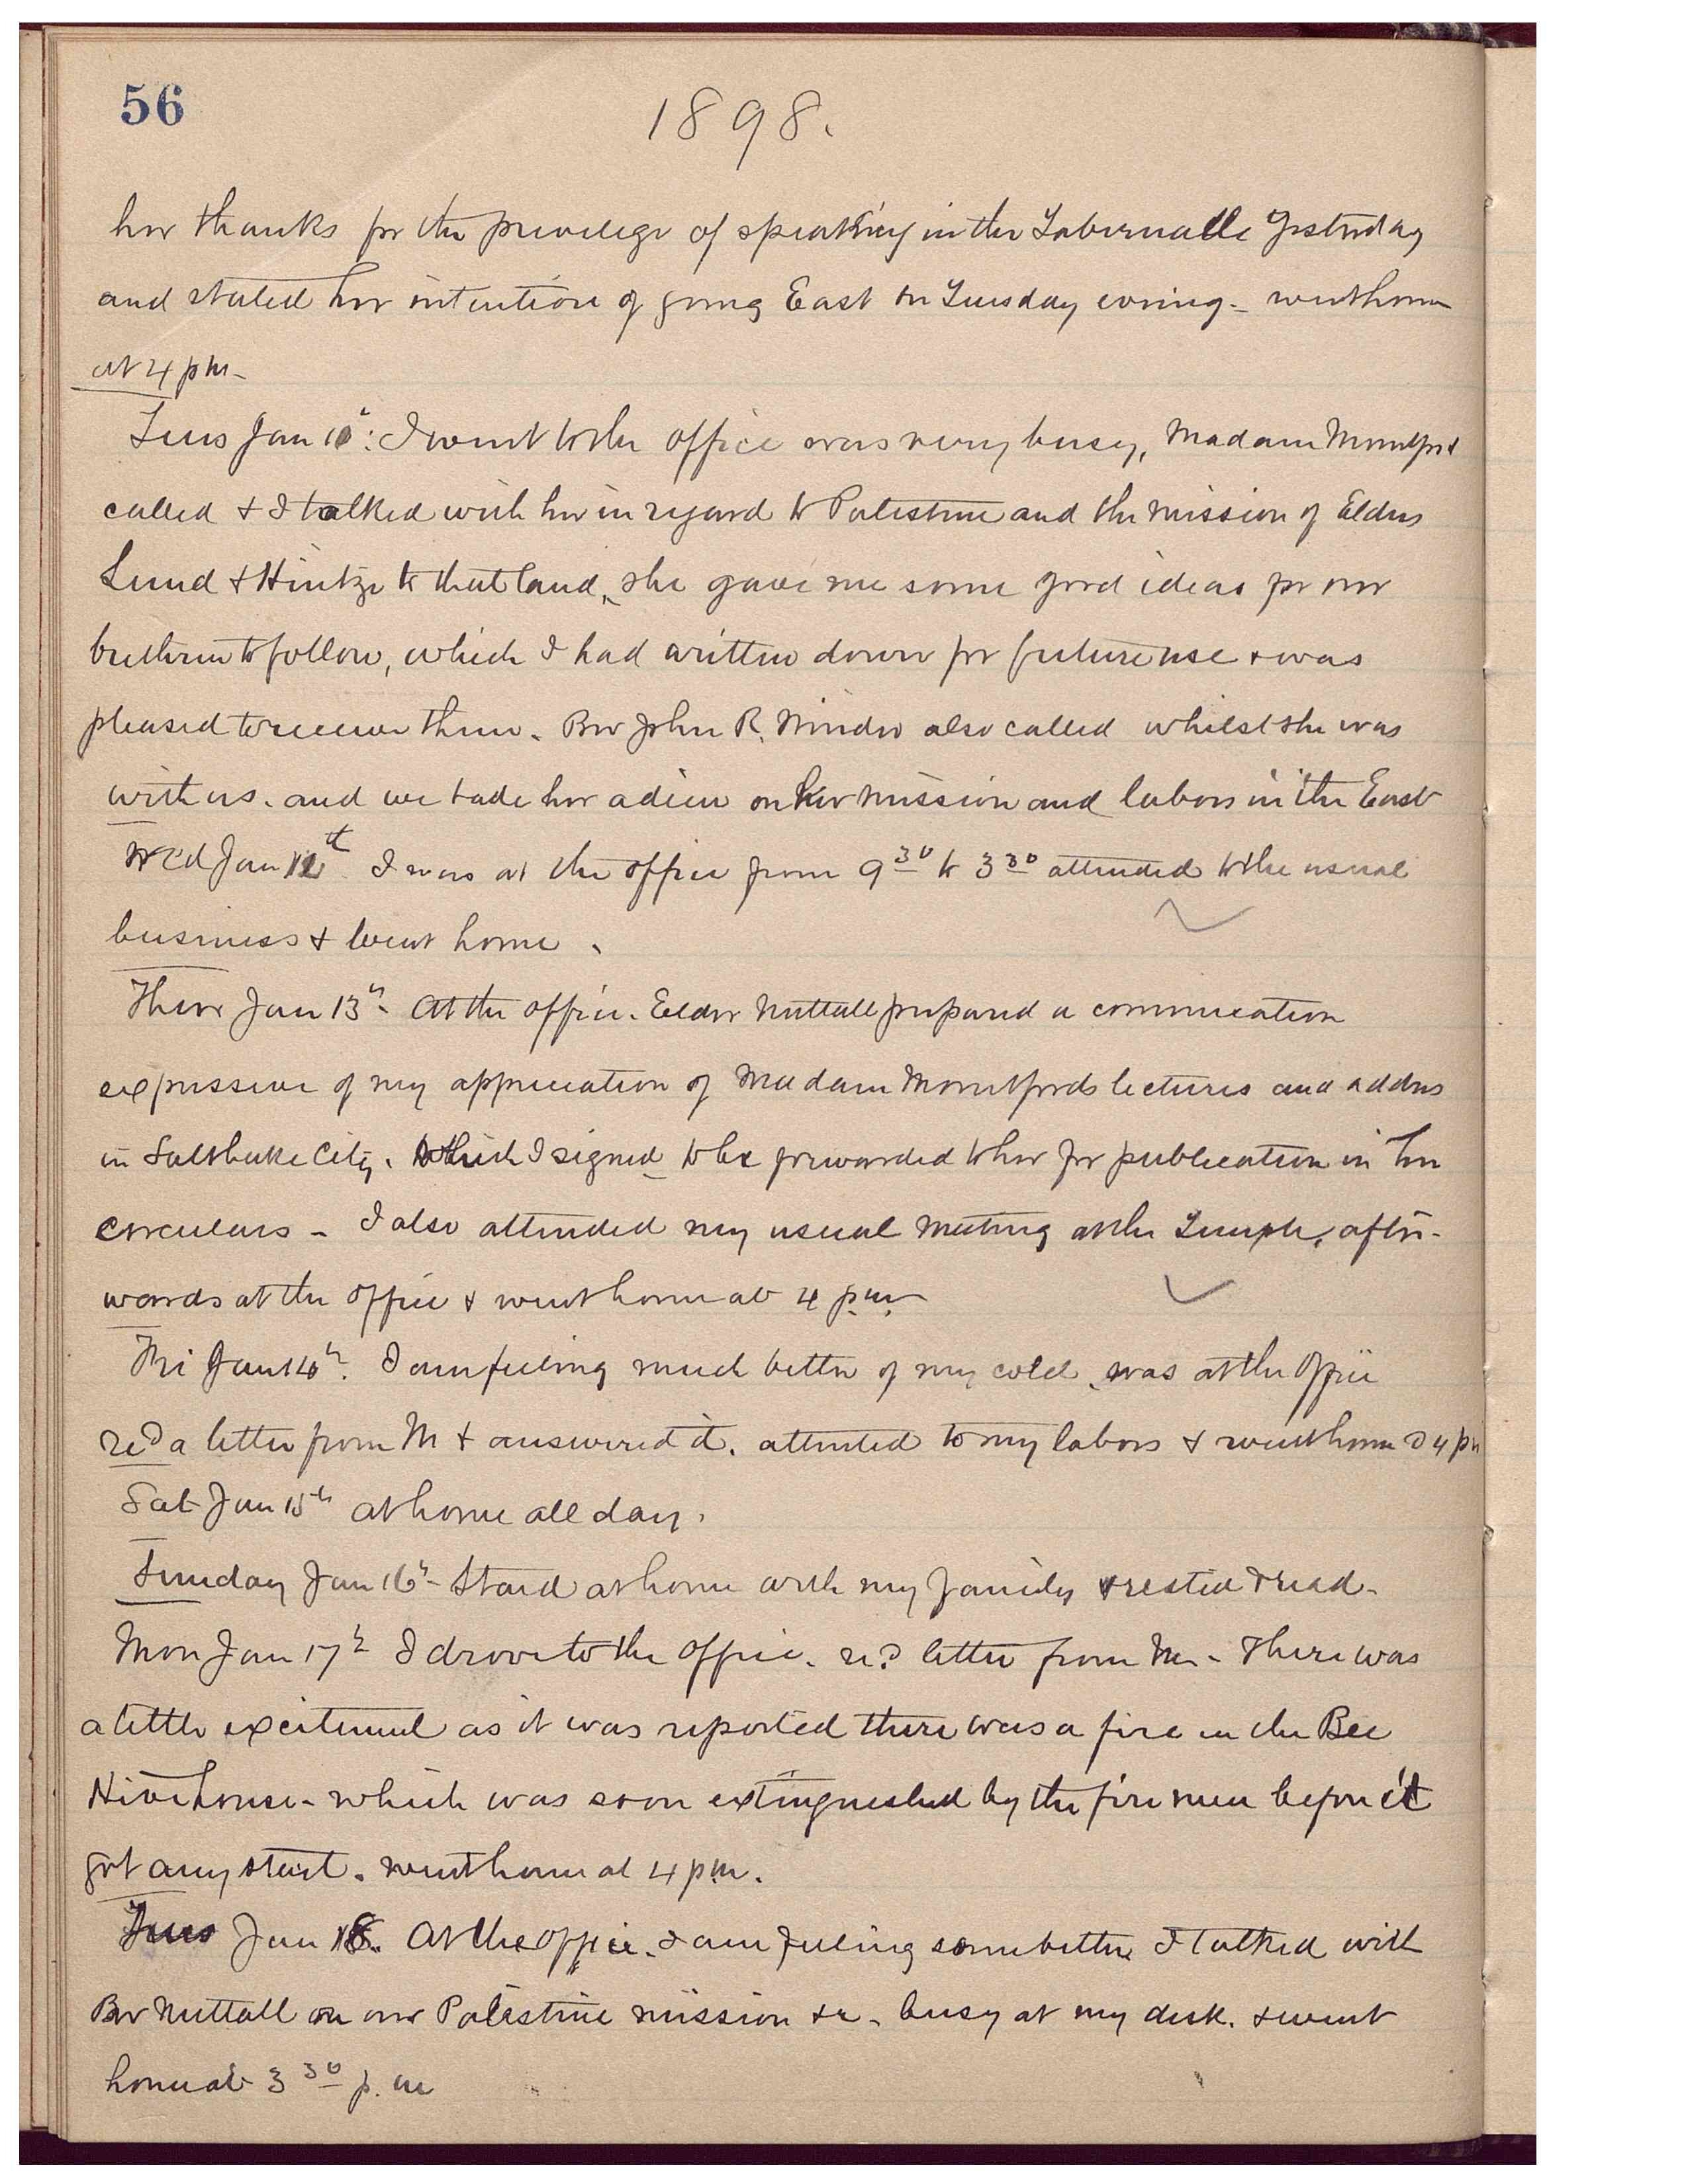 56
1898.
her thanks for the privilege of speaking in the Tabernacle yesterday
and stated her intention of going East on Tuesday evening - went home
at 4 pm -
Tues Jan 11th: I went to the office was very busy, Madam Mountford
called & I talked with her in regard to Palestine and the mission of Elders
Lund & Hintze to that land, she gave me some good ideas for our
brethren to follow, which I had written down for future use & was
pleased to receive them. Bro John R. Winder also called whilst she was
with us. and we bade her adieu on her mission and labors in the East
Wed Jan 12th I was at the office from 9 30 to 3 30 attended to the usual
business & went home.
Thur Jan 13th - At the office. Elder Nuttall prepared a communication
expressive of my appreciation of Madam Mountfords lectures and address
in Salt Lake City. Which I signed to be forwarded to her for publication in her
circulars - I also attended my usual meeting at the Temple, after-
wards at the office & went home at 4 p.m.
Fri Jan 14th. I am feeling much better of my cold, was at the office
recd a letter from M & answered it. attented to my labors & went home @ 4 pm
Sat Jan 15th at home all day.
Sunday Jan 16th - Staid at home with my family & rested & read -
Mon Jan 17th I drove to the office. recd letter from M. - There was
a little excitement as it was reported there was a fire in the Bee
Hive house - which was soon extinguished by the fire men before it
got any start. went home at 4 p.m.
Tues Jan 18. At the office. I am feeling some better I talked with
Bro Nuttall on our Palestine mission &c. busy at my desk. & went
home at 3 30 p.m